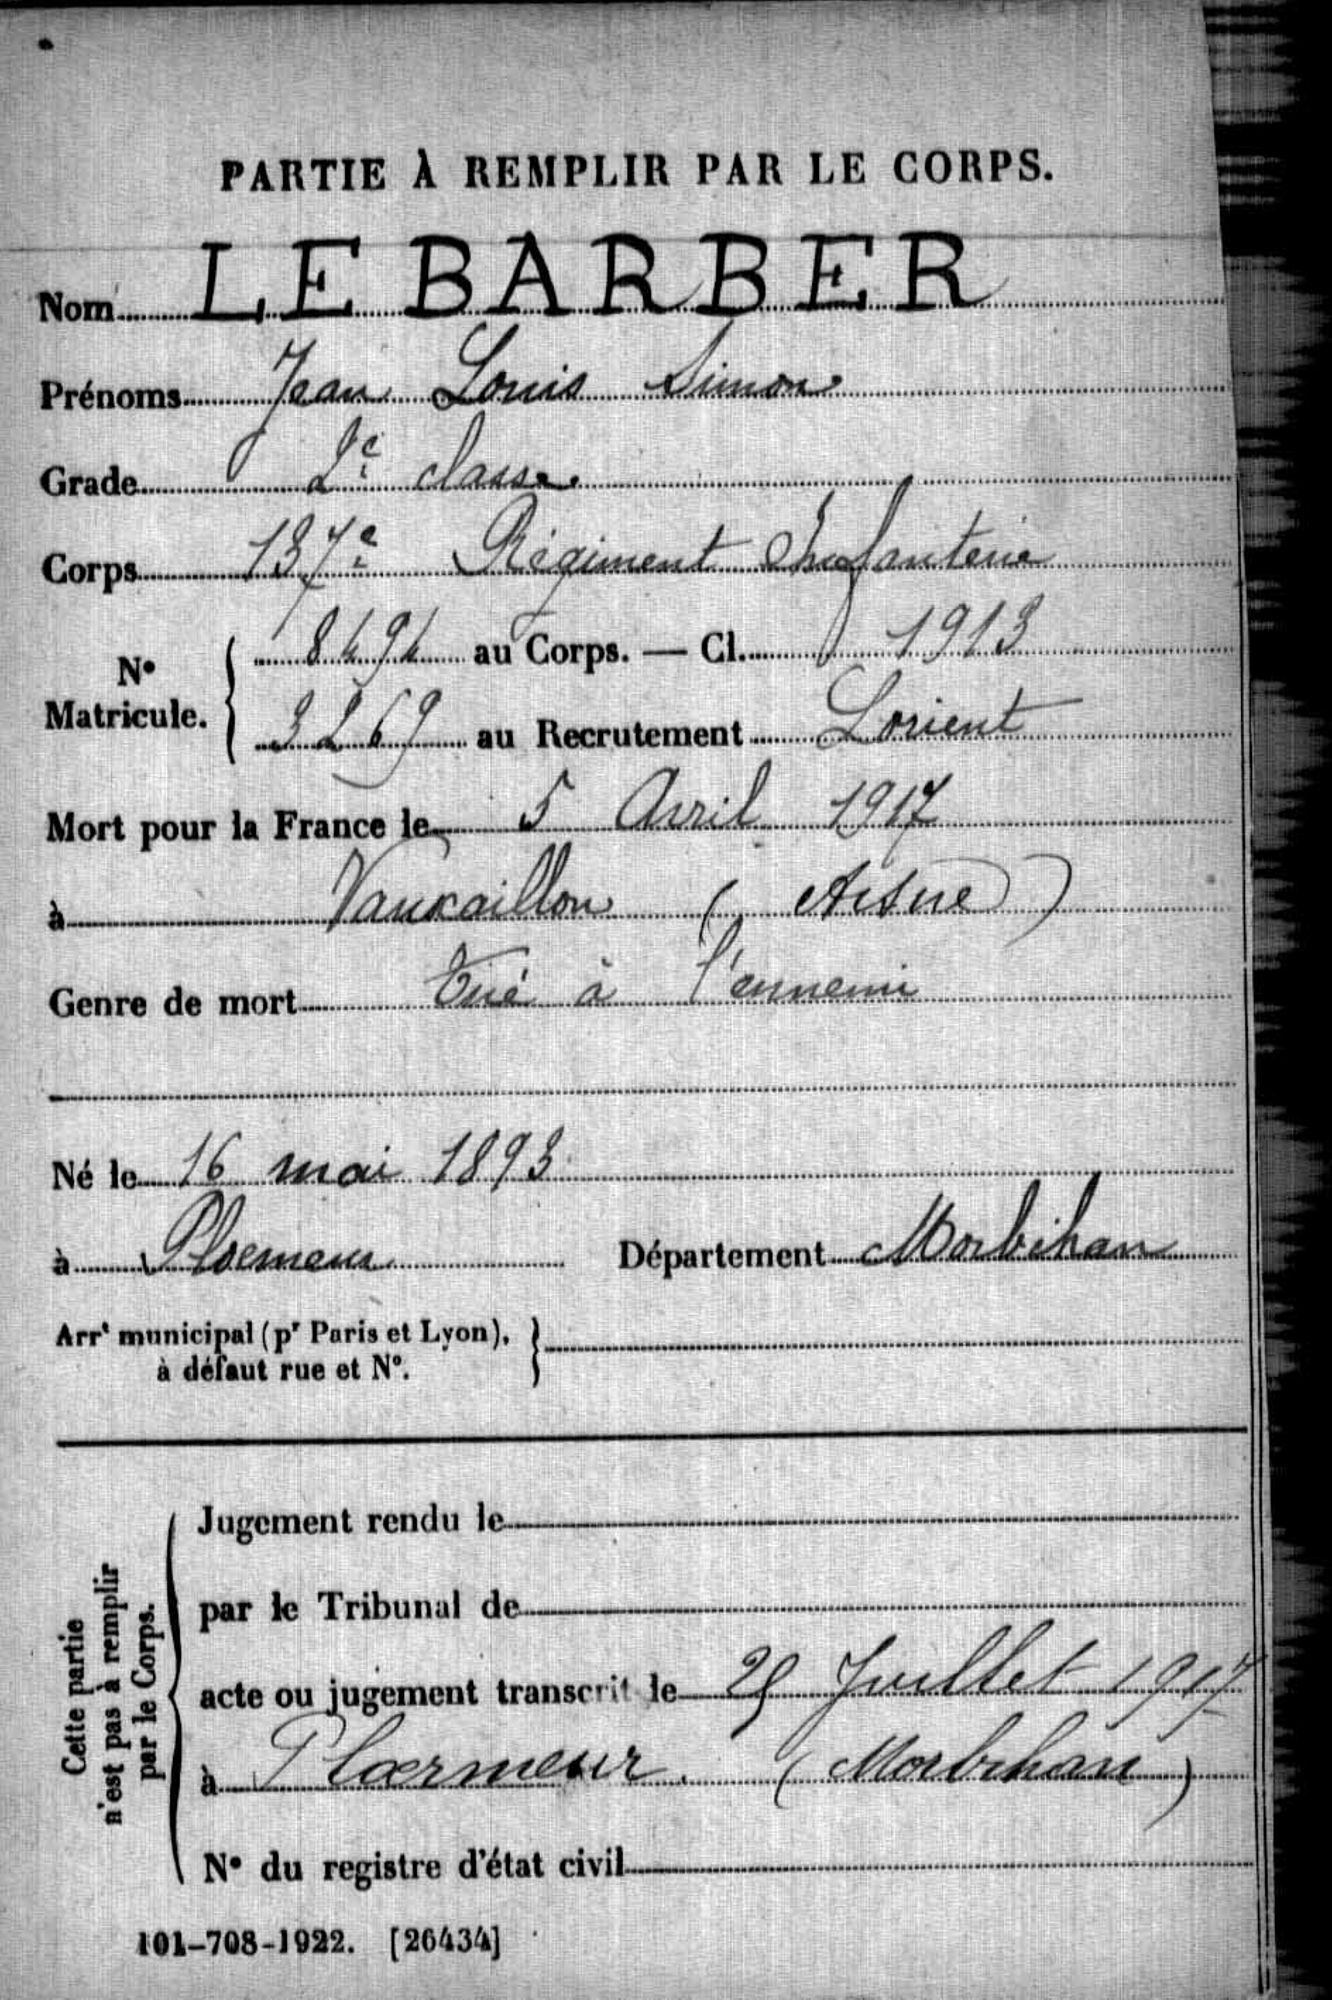 PARTIE À REMPLIR PAR LE CORPS.
Nom LE BARBER
Prénoms Jean Louis Simon
Grade 2e classe
Corps 137e Régiment Infanterie
N° Matricule. { 8494 au Corps. — Cl. 1913
3269 au Recrutement Lorient
Mort pour la France le 5 Avril 1917
à Vauxaillon (Aisne)
Genre de mort Tué à l'ennemi
Né le 16 mai 1893
à Ploemeur Département Morbihan
Arrt municipal (pr Paris et Lyon), }
à défaut rue et N°.
Cette partie
n'est pas à remplir
par le Corps.
Jugement rendu le
par le Tribunal de
acte ou jugement transcrit le 25 Juillet 1917
à Ploermeur (Morbihan)
N° du registre d'état civil
101-708-1922. [26434]